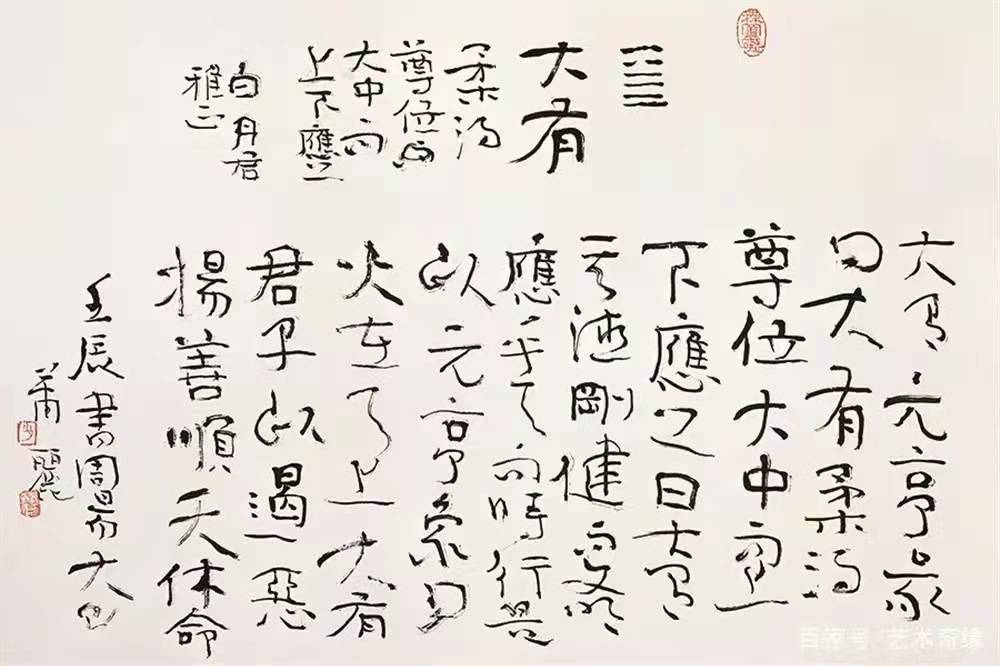 大有
柔得
尊位
大中而
上下應之
白丹君
雅正
大有元亨彖
曰大有柔得
尊位大中而上
下應之曰大有
其德剛健而文明
應乎天而時行是
以元亨象曰
火在天上大有
君子以遏惡
揚善順天休命
壬辰書周易大有
蕭麗
百家号/艺术奇缘